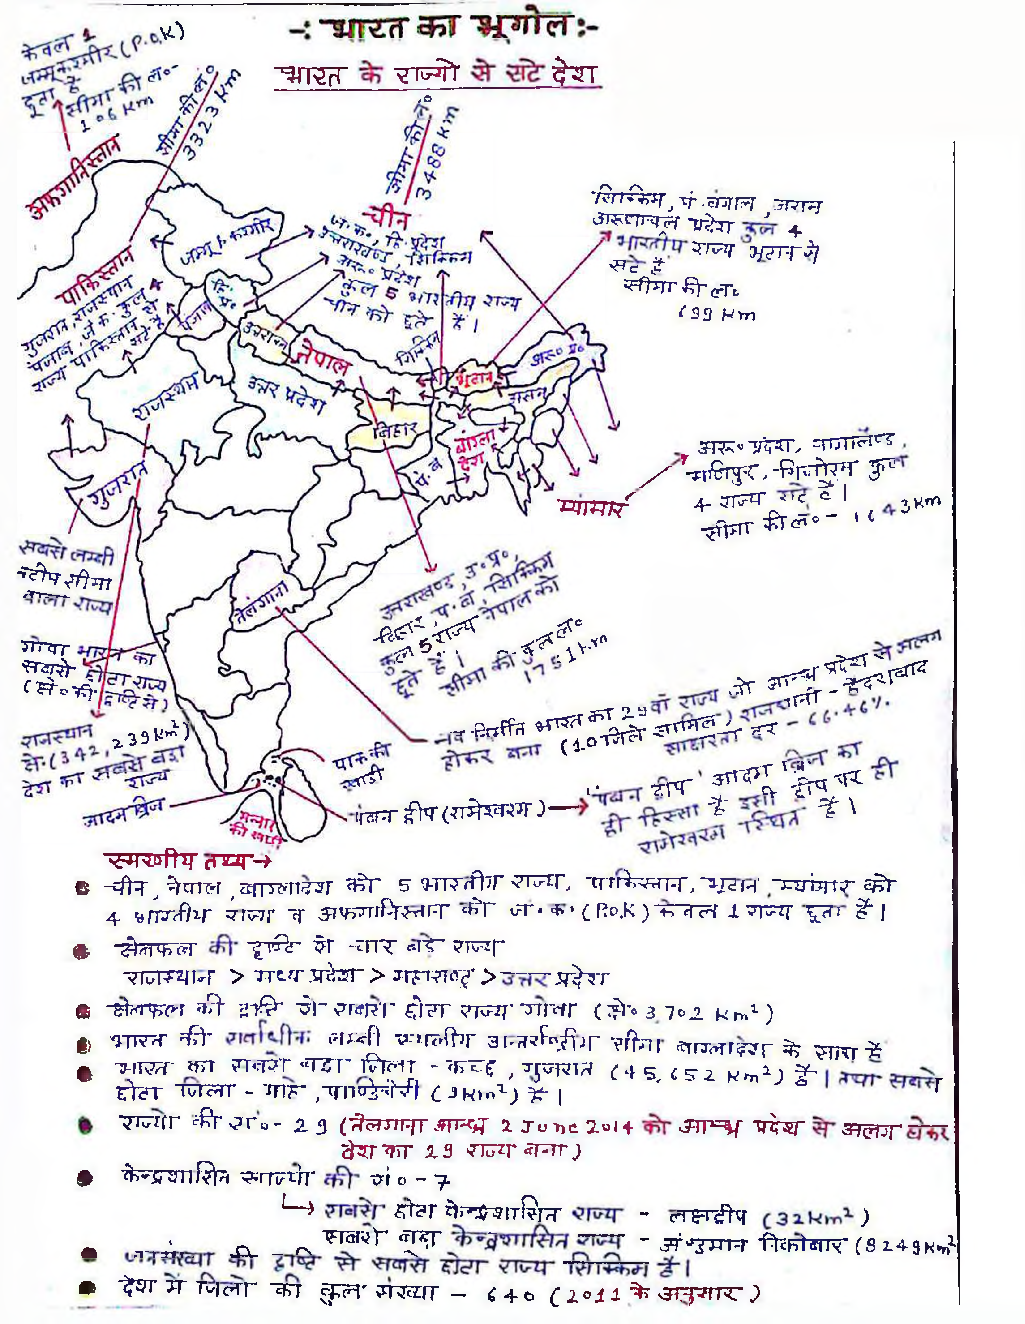 -: भारत का भूगोल:-
भारत के राज्यो से सटे देश
केवल 1
जम्मू कश्मीर (P.O.K)
छूता है
सीमा की ल०-
106 Km
अफगानिस्तान
सीमा की ल०
3323 Km
सीमा की ल०
3488 Km
चीन
ज.क., हि. प्रदेश
उत्तराखण्ड, सिक्किम
अरू० प्रदेश
कुल 5 भारतीय राज्य
चीन को छूते हैं।
सिक्किम, पं. बंगाल, असम
अरूणाचल प्रदेश कुल 4
भारतीय राज्य भूटान से
सटे हैं
सीमा की ल०
699 Km
पाकिस्तान
गुजरात, राजस्थान
पंजाब, जं.क. कुल 4
राज्य पाकिस्तान से
सटे है
जम्मू & कश्मीर
हि.
प्र०
पंजाब
उत्तराखण्ड
नेपाल
सिक्किम
भूटान
अरू० प्र०
असम
राजस्थान
उत्तर प्रदेश
बिहार
बांग्ला
देश
पं. बं
गुजरात
म्यांमार
अरू० प्रदेश, नागालैण्ड,
मणिपुर, मिजोरम कुल
4 राज्य सटे हैं।
सीमा की लं०- 1643 Km
सबसे लम्बी
तटीय सीमा
वाला राज्य
तेलंगाना
उत्तराखण्ड, उ.प्र०,
बिहार, प.बं, सिक्किम
कुल 5 राज्य नेपाल को
छूते हैं।
सीमा की कुल ल०
1751 km
गोवा भारत का
सबसे छोटा राज्य
(क्षे० की दृष्टि से)
राजस्थान
क्षे. (342,239 Km²)
देश का सबसे बडा
राज्य
नव निर्मीत भारत का 29वाँ राज्य जो आन्ध्र प्रदेश से अलग
होकर बना (10 जिले सामिल) राजधानी - हैदराबाद
साक्षरता दर - 66.46%.
पाक की
खाडी
आदम ब्रिज
पंबन द्वीप (रामेश्वरम)
'पंबन द्वीप' आदम ब्रिज का
ही हिस्सा है इसी द्वीप पर ही
रामेश्वरम स्थित है।
मन्नार
की खाडी
स्मरणीय तथ्य→
चीन, नेपाल, बाग्लादेश को 5 भारतीय राज्य, पाकिस्तान, भूटान, म्यांमार को
4 भारतीय राज्य व अफगानिस्तान को जं.क. (P.O.K) केवल 1 राज्य छूता है।
क्षेत्रफल की दृष्टि से चार बडे राज्य
राजस्थान > मध्य प्रदेश > महाराष्ट्र > उत्तर प्रदेश
क्षेत्रफल की दृष्टि से सबसे छोटा राज्य गोवा (क्षे० 3,702 Km²)
भारत की सर्वाधीक लम्बी स्थलीय अन्तर्राष्ट्रीय सीमा बाग्लादेश के साथ है
भारत का सबसे बडा जिला - कच्छ, गुजरात (45,652 Km²) है। तथा सबसे
छोटा जिला - माहे, पाण्डिचेरी (9 Km²) है।
राज्यो की सं०- 29 (तेलगाना आन्ध्र 2 June 2014 को आन्ध्र प्रदेश से अलग होकर
देश का 29 राज्य बना)
केन्द्रशासित राज्यो की सं० - 7
सबसे छोटा केन्द्रशासित राज्य - लक्षद्वीप (32 Km²)
सबसे बडा केन्द्रशासित राज्य - अंण्डमान निकोबार (8249 Km²
जनसंख्या की दृष्टि से सबसे छोटा राज्य सिक्किम है।
देश में जिलो की कुल संख्या - 640 (2011 के अनुसार)